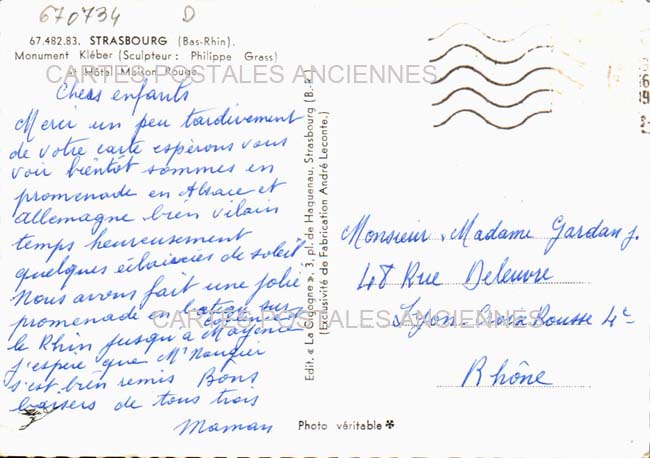 670734 D
67.482.83. STRASBOURG (Bas-Rhin).
Monument Kléber (Sculpteur : Philippe Grass)
et Hôtel Maison Rouge
CARTES POSTALES ANCIENNES
Chers enfants
Merci un peu tardivement
de votre carte espérons vous
voir bientôt sommes en
promenade en Alsace et
Allemagne bien vilain
temps heureusement
quelques éclaircies de soleil
Nous avons fait une jolie
promenade en bateau sur
le Rhin jusqu'a Mayence
j'espère que Mr
s'est bien remis Bons
baisers de tous trois
Maman
Edit. « La Cigogne », 3, pl. de Haguenau, Strasbourg (B.-R.)
(Exclusivité de Fabrication André Leconte.)
Photo véritable
Monsieur, Madame Gardan j.
48 Rue Deleuvre
Lyon Croix Rousse 4e
Rhône
CARTES POSTALES ANCIENNES